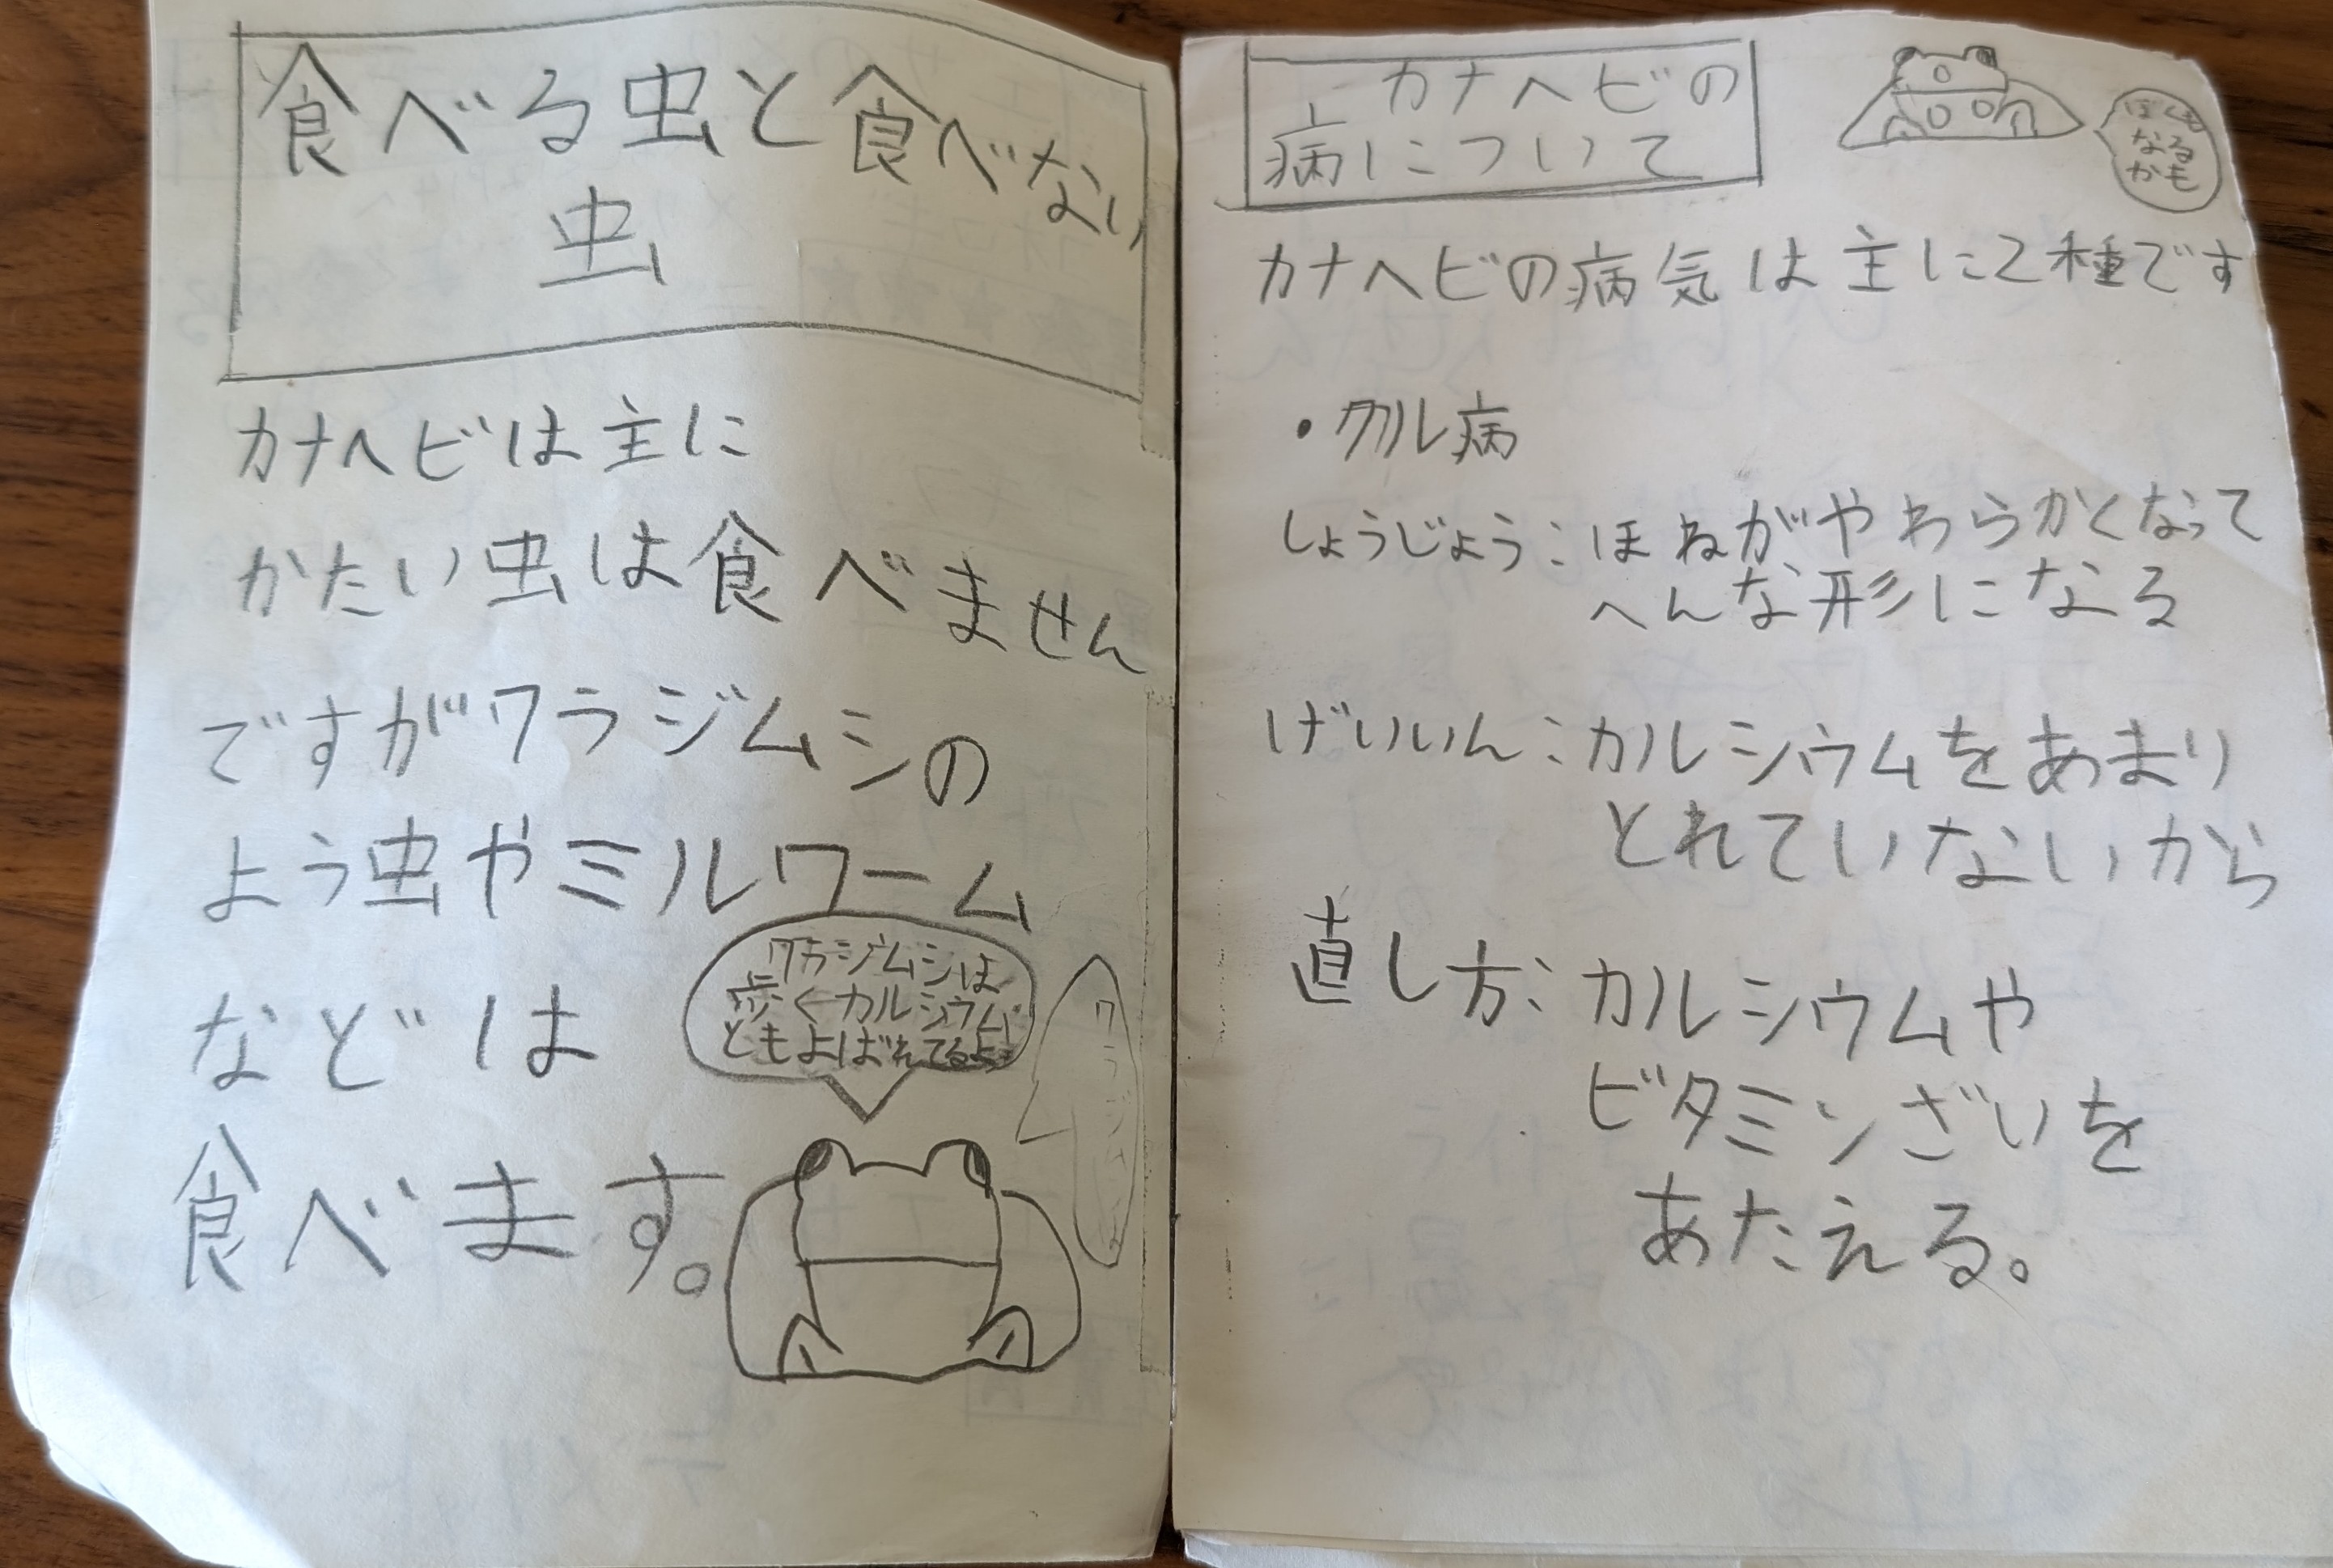 食べる虫と食べない
虫
カナヘビは主に
かたい虫は食べません
ですがワラジムシの
よう虫やミルワーム
などは
食べます。
ワラジムシは
歩くカルシウム
ともよばれてるよ
カナヘビの
病について
ぼくも
なる
かも
カナヘビの病気は主に2種です
・クル病
しょうじょう:ほねがやわらかくなって
へんな形になる
げいいん:カルシウムをあまり
とれていないから
直し方:カルシウムや
ビタミンざいを
あたえる。